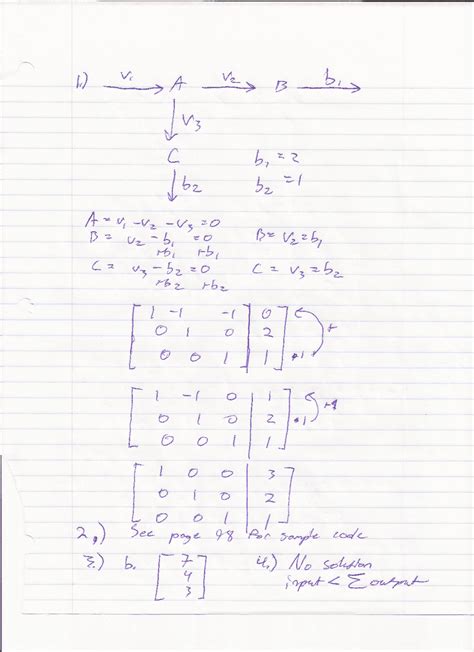 1.) V₁ → A V₂ → B b₁ →
↓ V₃
C b₁ = 2
↓ b₂ b₂ = 1
A = V₁ - V₂ - V₃ = 0
B = V₂ - b₁ = 0 B = V₂ = b₁
+b₁ +b₁
C = V₃ - b₂ = 0 C = V₃ = b₂
+b₂ +b₂
[ 1 -1 -1 | 0 ] +
[ 0 1 0 | 2 ]
[ 0 0 1 | 1 ] •1
[ 1 -1 0 | 1 ] +1
[ 0 1 0 | 2 ] •1
[ 0 0 1 | 1 ]
[ 1 0 0 | 3 ]
[ 0 1 0 | 2 ]
[ 0 0 1 | 1 ]
2.) See page 98 for sample code
3.) b. [ 7 4.) No solution
4 input < Σ output
3 ]